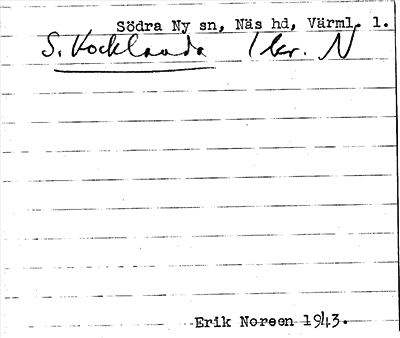 Södra Ny sn, Näs hd, Värml. l.
S. Kocklanda 1 kr. N
Erik Noreen 1943.